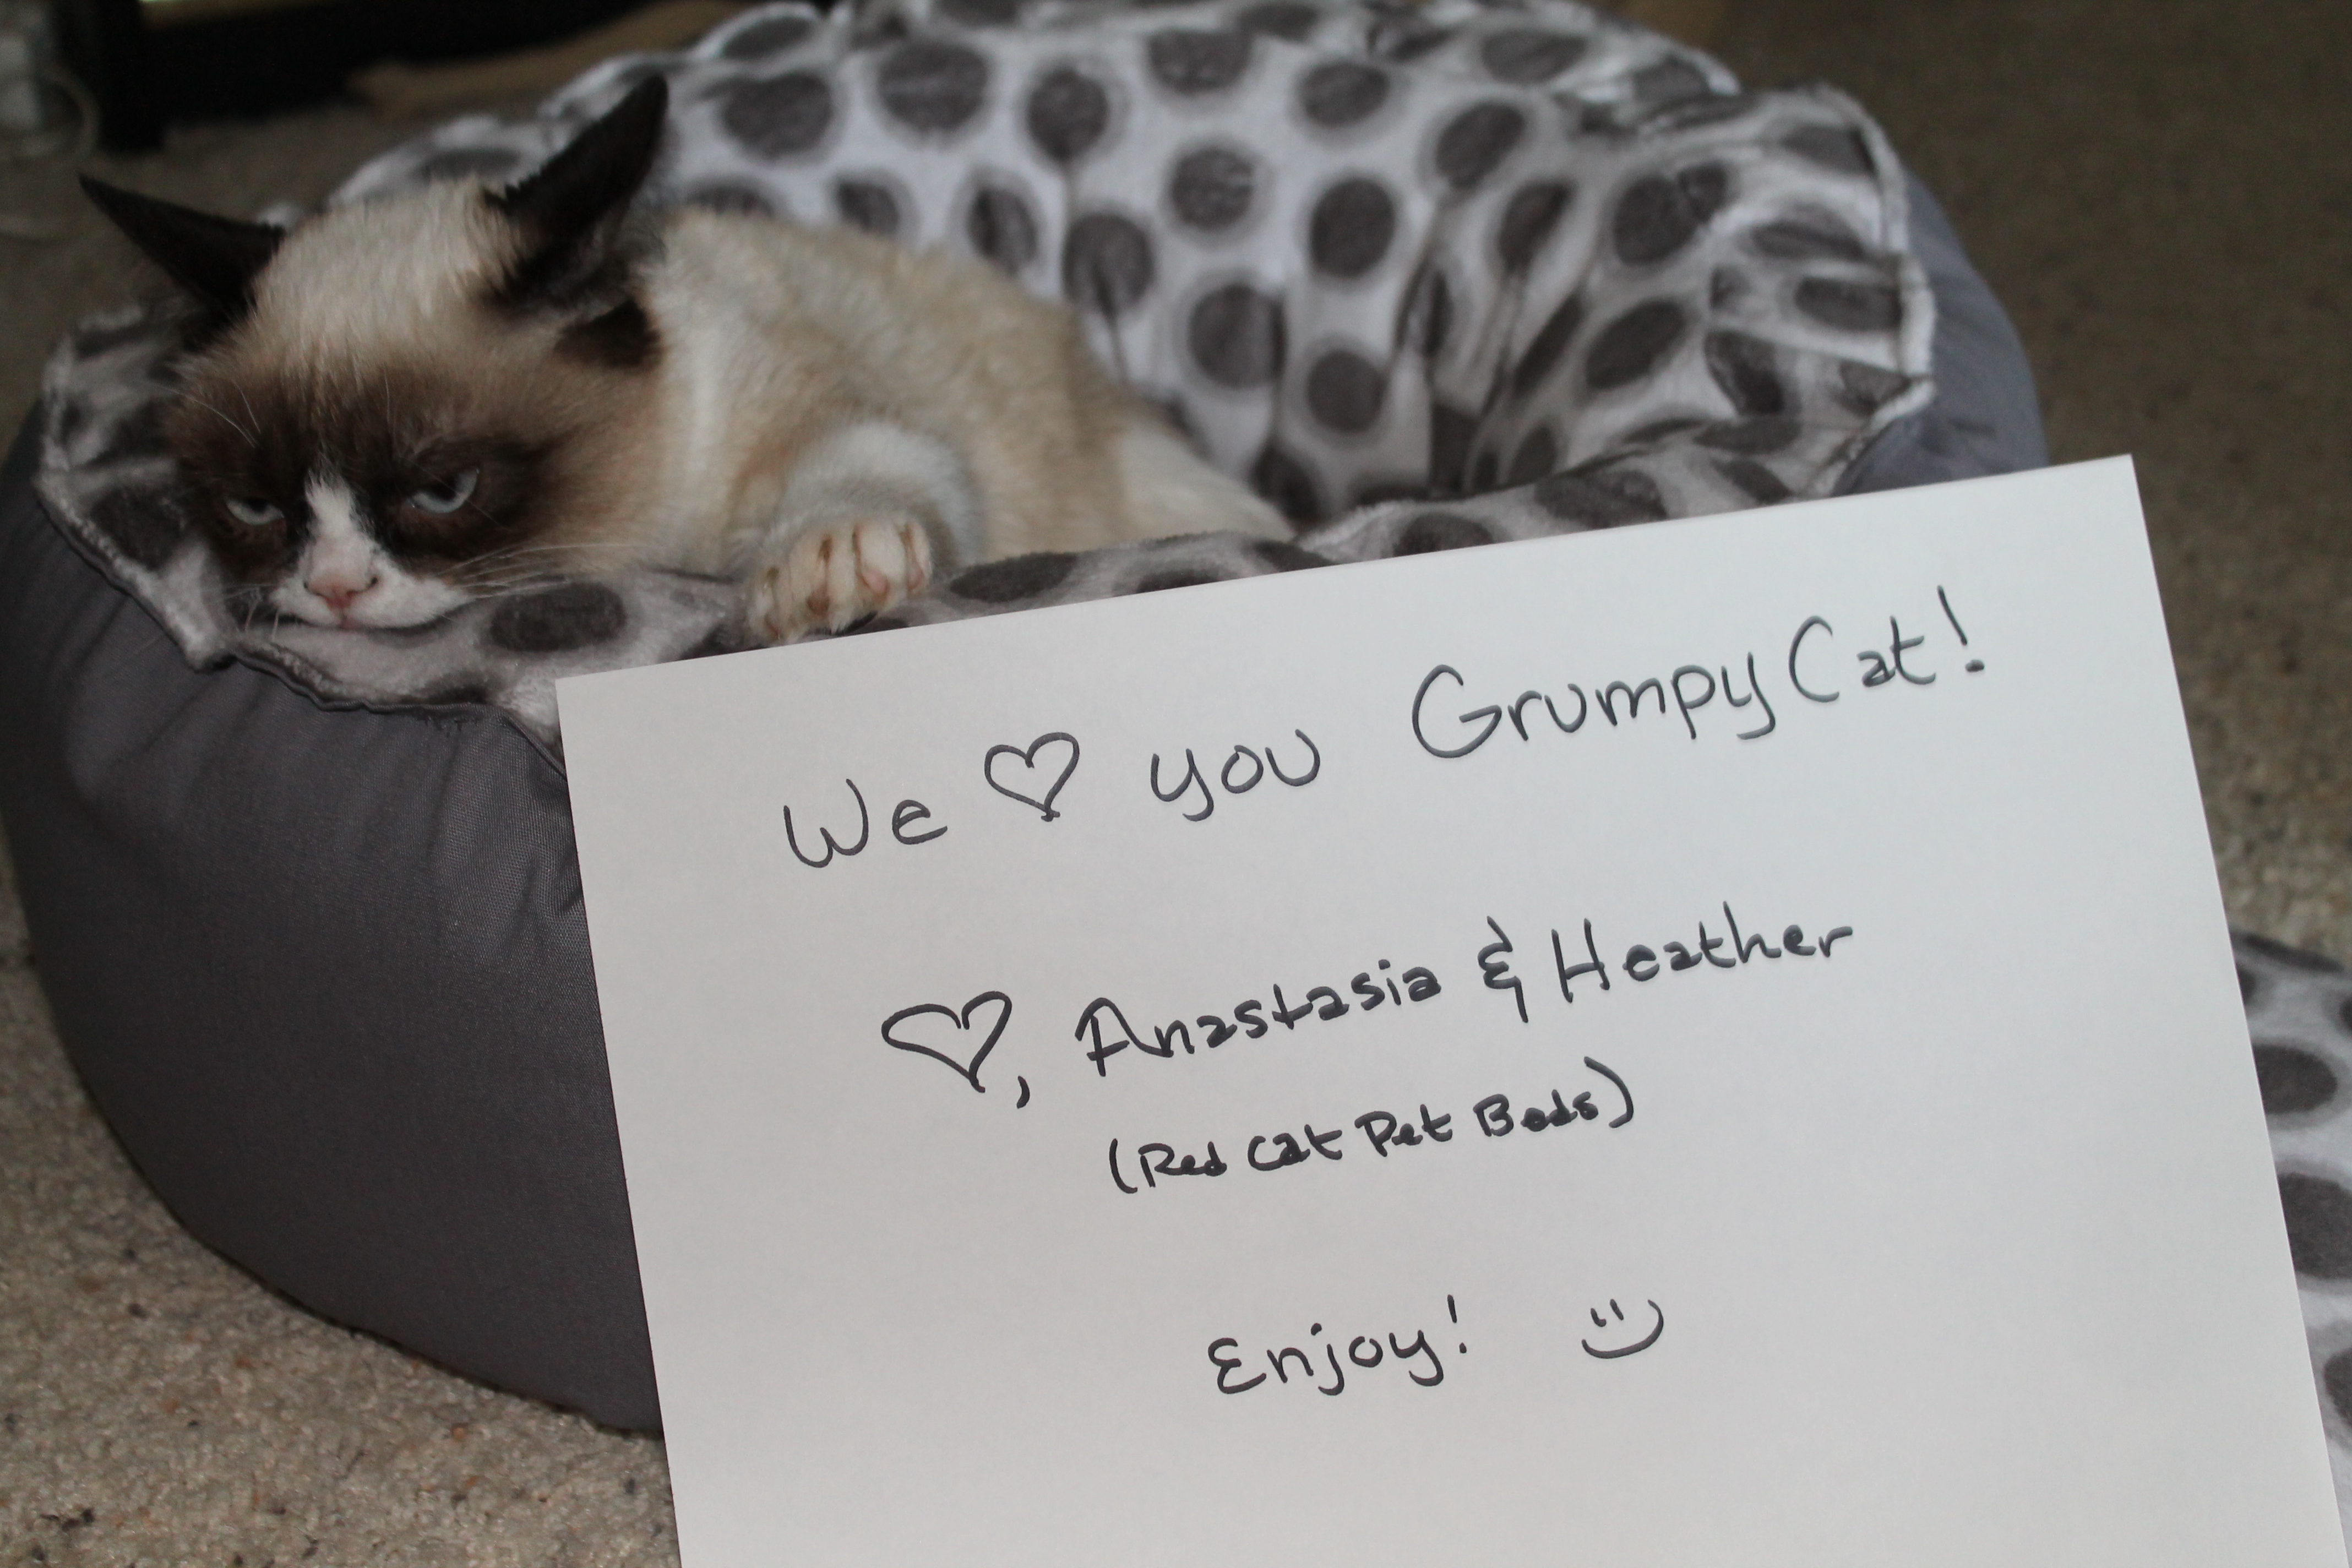 We ♡ you Grumpy Cat!
♡, Anastasia & Heather
(Red Cat Pet Beds)
Enjoy! :)